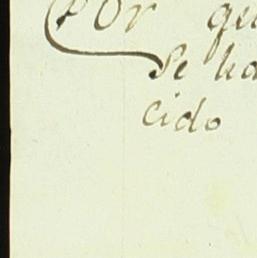 Por qu
Se ha
cido